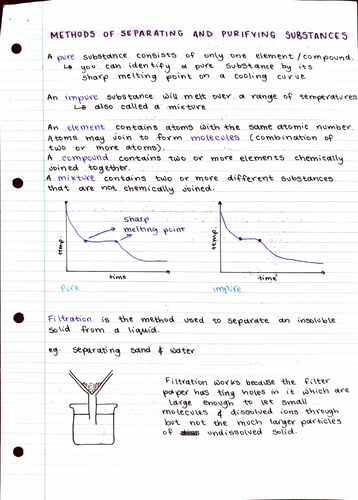 METHODS OF SEPARATING AND PURIFYING SUBSTANCES
A pure substance consists of only one element/compound.
↳ you can identify a pure substance by its
sharp melting point on a cooling curve
An impure substance will melt over a range of temperatures
↳ also called a mixture
An element contains atoms with the same atomic number.
Atoms may join to form molecules (combination of
two or more atoms).
A compound contains two or more elements chemically
joined together.
A mixture contains two or more different substances
that are not chemically joined.
temp.
sharp
melting point
time
pure
temp.
time
impure
Filtration is the method used to separate an insoluble
solid from a liquid.
eg. Separating sand & water
Filtration works because the filter
paper has tiny holes in it which are
large enough to let small
molecules & dissolved ions through
but not the much larger particles
of undissolved solid.